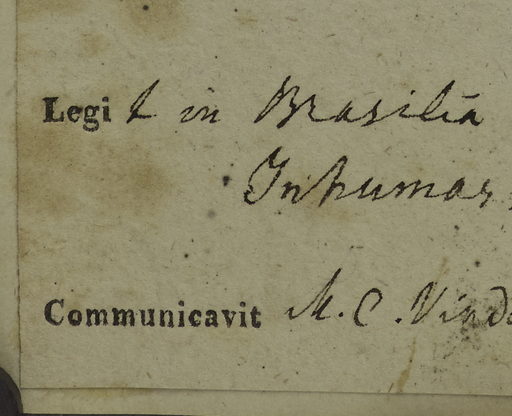 Legit in Brasiliā
Inhumas,
Communicavit M. C. Vind